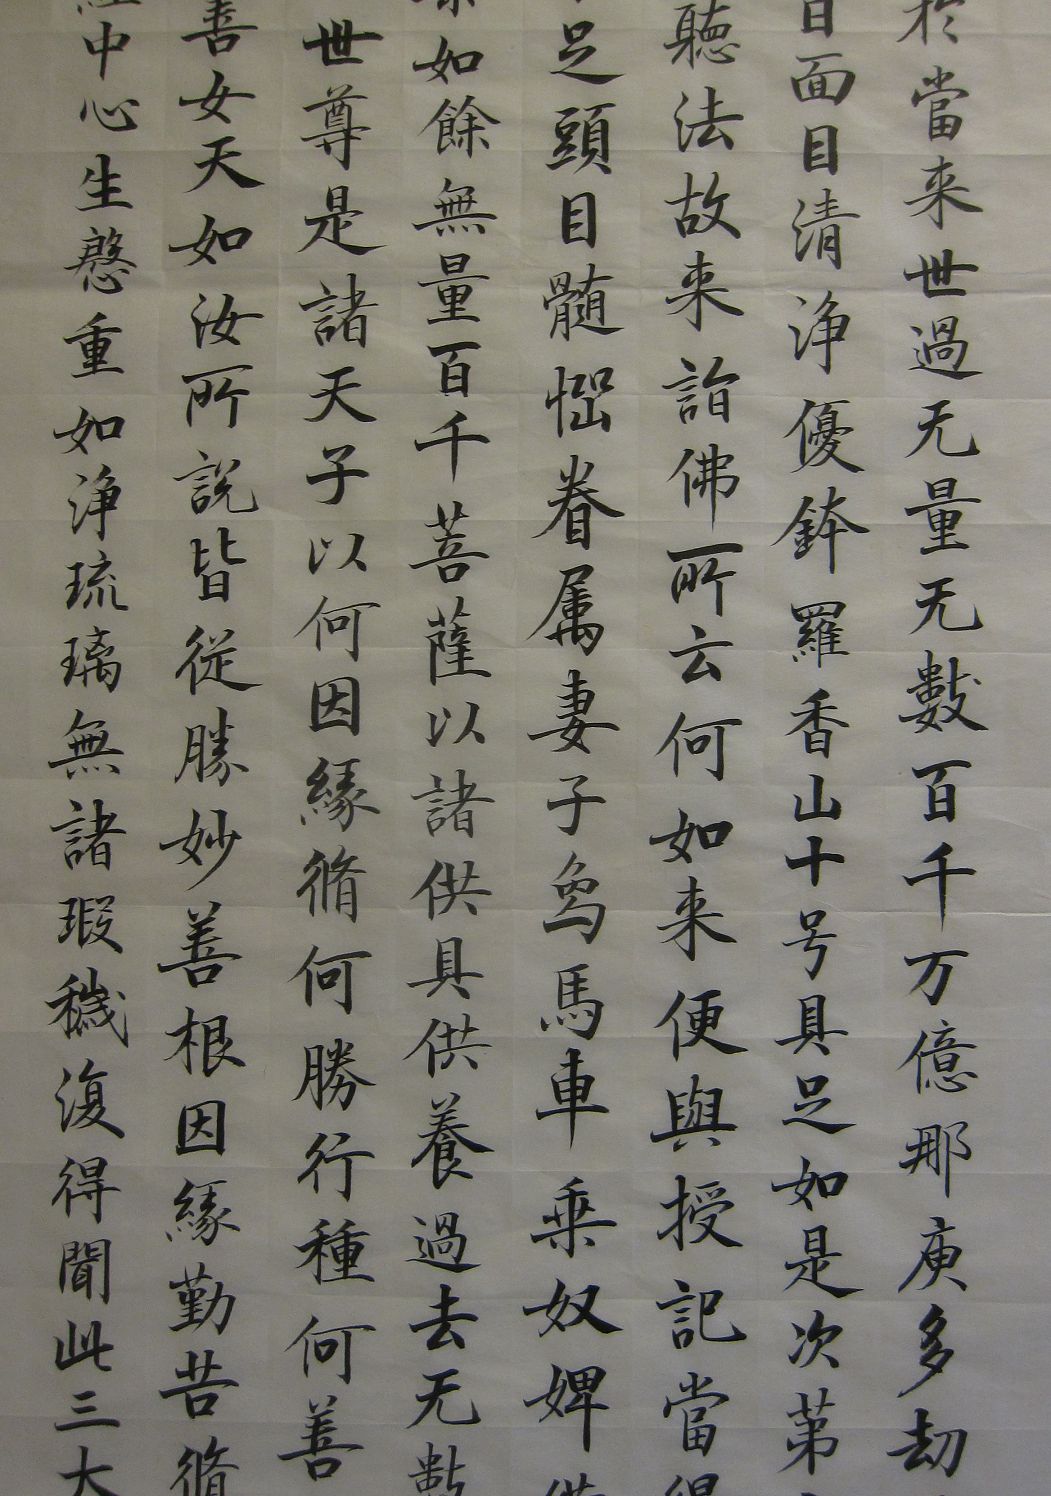 於當来世過无量无數百千万億那庾多劫
日面目清浄優鉢羅香山十号具足如是次第
聽法故来詣佛所云何如来便與授記當得
足頭目髓惱眷属妻子烏馬車乗奴婢
如餘無量百千菩薩以諸供具供養過去无數
世尊是諸天子以何因緣脩何勝行種何善
善女天如汝所説皆從勝妙善根因緣勤苦脩
中心生慇重如浄琉璃無諸瑕穢復得聞此三大